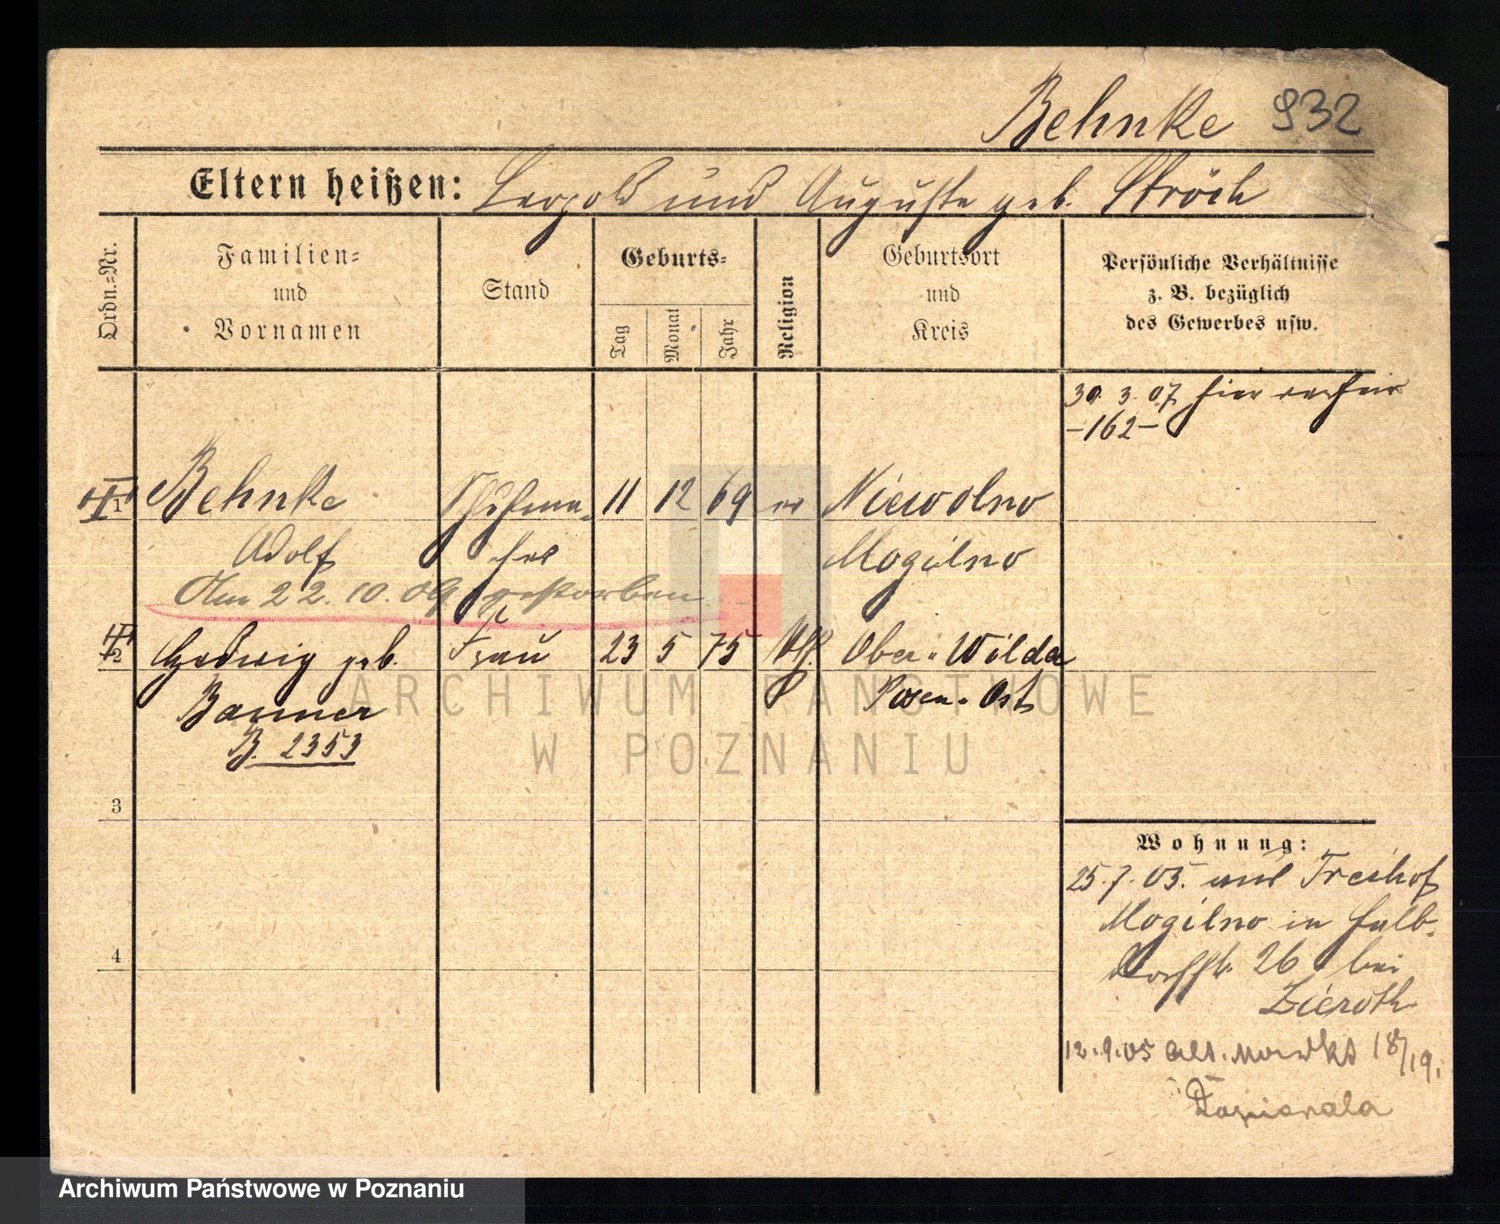 Behnke 932
Eltern heißen: Leopold und Auguste geb. Ströch
Ordn.=Nr.
Familien= und Vornamen
Stand
Geburts=
Tag
Monat
Jahr
Religion
Geburtsort und Kreis
Persönliche Verhältnisse z. B. bezüglich des Gewerbes usw.
30. 3. 07. hier
-162-
1 Behnke Schuhma- 11 12 69 ev Niewolno
Adolf cher Mogilno
Am 22. 10. 09. gestorben
2 Hedwig geb. Frau 23 5 75 Ober-Wilda
Banner Posen-Ost
B. 2353
3
Wohnung:
25.7.05. aus Treihof
Mogilno in Halb-
dorfstr. 26 bei
Zieroth
4
12.9.05 Alt. Markt 18/19.
ARCHIWUM PAŃSTWOWE
W POZNANIU
Archiwum Państwowe w Poznaniu